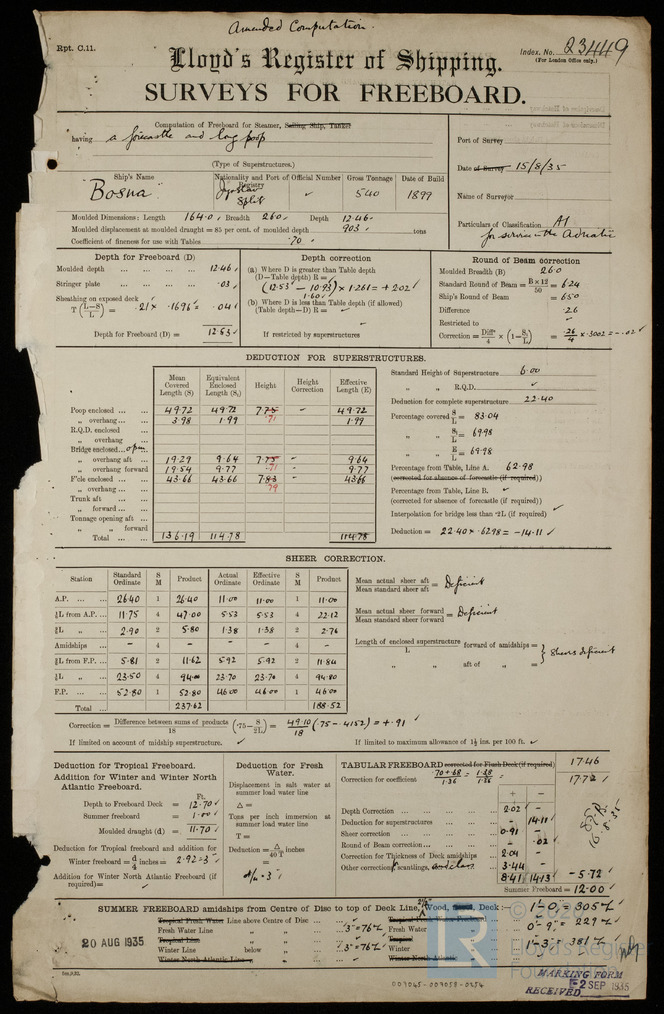 Amended Computation.
Rpt. C.11.
Index. No. 23449
(For London Office only.)
Lloyd's Register of Shipping.
SURVEYS FOR FREEBOARD.
Computation of Freeboard for Steamer, Sailing Ship, Tanker
having a forecastle and long poop
(Type of Superstructures.)
Port of Survey
Date of Survey 15/8/35
Name of Surveyor
Particulars of Classification A1
for service in the Adriatic
Ship's Name Nationality and Port of Registry Official Number Gross Tonnage Date of Build
Bosna Split 540 1899
Moulded Dimensions: Length 164.0 Breadth 26.0 Depth 12.46
Moulded displacement at moulded draught = 85 per cent. of moulded depth 903 tons
Coefficient of fineness for use with Tables .70
Depth for Freeboard (D)
Moulded depth 12.46
Stringer plate .03
Sheathing on exposed deck
T (L-S/L) = .21 × .1696 = .04
Depth for Freeboard (D) = 12.53
Depth correction
(a) Where D is greater than Table depth
(D-Table depth) R =
(12.53 - 10.93) × 1.261 = + 2.02
1.60
(b) Where D is less than Table depth (if allowed)
(Table depth-D) R =
If restricted by superstructures
Round of Beam correction
Moulded Breadth (B) 26.0
Standard Round of Beam = B×12/50 = 6.24
Ship's Round of Beam = 6.50
Difference .26
Restricted to
Correction = Diff/4 × (1 - S₁/L) = .26/4 × .3002 = -.02
DEDUCTION FOR SUPERSTRUCTURES.
Mean Covered Length (S) Equivalent Enclosed Length (S₁) Height Height Correction Effective Length (E)
Poop enclosed 49.72 49.72 7.75 - 49.72
„ overhang 3.98 1.99 .71 1.99
R.Q.D. enclosed
„ overhang
Bridge enclosed open
„ overhang aft 19.29 9.64 7.75 - 9.64
„ overhang forward 19.54 9.77 .71 - 9.77
F'cle enclosed 43.66 43.66 7.83 - 43.66
„ overhang .79
Trunk aft
„ forward
Tonnage opening aft
„ „ forward
Total 136.19 114.78 114.78
Standard Height of Superstructure 6.00
„ „ R.Q.D.
Deduction for complete superstructure 22.40
Percentage covered S/L = 83.04
„ „ S₁/L = 69.98
„ „ E/L = 69.98
Percentage from Table, Line A. 62.98
(corrected for absence of forecastle (if required))
Percentage from Table, Line B.
(corrected for absence of forecastle (if required))
Interpolation for bridge less than ·2L (if required)
Deduction = 22.40 × .6298 = -14.11
SHEER CORRECTION.
Station Standard Ordinate S M Product Actual Ordinate Effective Ordinate S M Product
A.P. 26.40 1 26.40 11.00 11.00 1 11.00
⅙L from A.P. 11.75 4 47.00 5.53 5.53 4 22.12
⅓L „ 2.90 2 5.80 1.38 1.38 2 2.76
Amidships - 4 - - - 4 -
⅓L from F.P. 5.81 2 11.62 5.92 5.92 2 11.84
⅙L „ 23.50 4 94.00 23.70 23.70 4 94.80
F.P. 52.80 1 52.80 46.00 46.00 1 46.00
Total 237.62 188.52
Mean actual sheer aft / Mean standard sheer aft = Deficient
Mean actual sheer forward / Mean standard sheer forward = Deficient
Length of enclosed superstructure / L forward of amidships = Sheers deficient
„ „ aft of „ =
Correction = Difference between sums of products / 18 (·75 - S/2L) = 49.10/18 (.75 - .4152) = + .91
If limited on account of midship superstructure.
If limited to maximum allowance of 1½ ins. per 100 ft.
Deduction for Tropical Freeboard.
Addition for Winter and Winter North
Atlantic Freeboard.
Ft.
Depth to Freeboard Deck = 12.70
Summer freeboard = 1.00
Moulded draught (d) = 11.70
Deduction for Tropical freeboard and addition for
Winter freeboard = d/4 inches = 2.92 = 3"
Addition for Winter North Atlantic Freeboard (if
required) =
Deduction for Fresh
Water.
Displacement in salt water at
summer load water line
Δ =
Tons per inch immersion at
summer load water line
T =
Deduction = Δ/40T inches
= 3"
TABULAR FREEBOARD corrected for Flush Deck (if required) 17.46
Correction for coefficient .70+.68/1.36 = 1.38/1.36 17.72
+ -
Depth Correction 2.02 -
Deduction for superstructures - 14.11
Sheer correction 0.91 -
Round of Beam correction - .02
Correction for Thickness of Deck amidships 2.04 -
Other corrections, scantlings, 3.44 -
8.41 14.13 -5.72
Summer Freeboard = 12.00
16.8.35
SUMMER FREEBOARD amidships from Centre of Disc to top of Deck Line, Wood, Steel, Deck:- 1'-0" = 305
Tropical Fresh Water Line above Centre of Disc
Fresh Water Line „ „ 3" = 76 Fresh Water 0'-9" = 229
Tropical Line „ „ Tropical
Winter Line below „ „ 3" = 76 Winter 1'-3" = 381
Winter North Atlantic Line „ „ Winter North Atlantic
20 AUG 1935
MARKING FORM
RECEIVED 2 SEP 1935
003045-003058-0254
LR
Lloyd's Register
Foundation